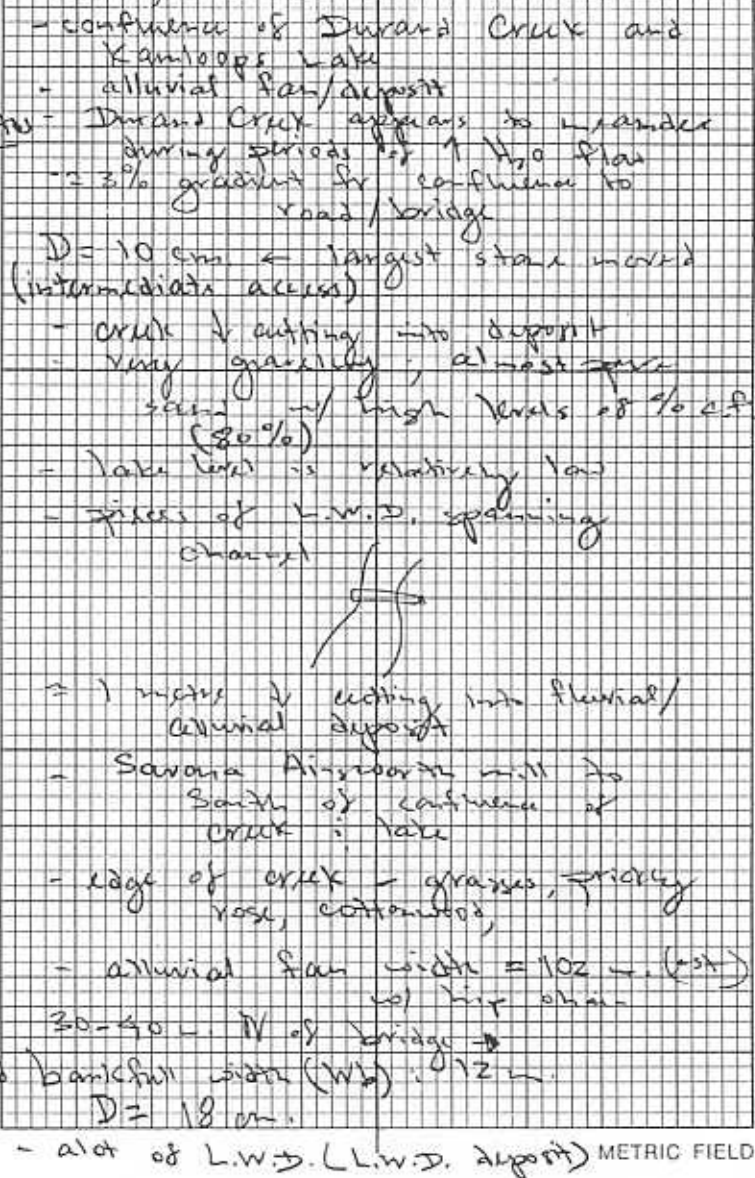 - confluence of Durand Creek and
Kamloops Lake
- alluvial fan/deposit
- Durand Creek appears to meander
during periods of ↑ H2O flow
- ≈ 3% gradient fr confluence to
road/bridge
D = 10 cm ← largest stone moved
(intermediate access)
- creek ↓ cutting into deposit
- very gravelley; almost pure
sand w/ high levels of % c.f
(80%)
- lake level is relatively low
- pieces of L.W.D. spanning
channel
≈ 1 metre ↓ cutting into fluvial/
alluvial deposit
- Savona Ainsworth mill to
South of confluence of
creek : lake
- edge of creek - grasses, prickley
rose, cottonwood,
- alluvial fan width = 102 m. (est)
w/ hip chain
30-40 m. N of bridge →
bankfull width (Wb) : 12 m.
D = 18 cm.
- alot of L.W.D. (L.W.D. deposit) METRIC FIELD